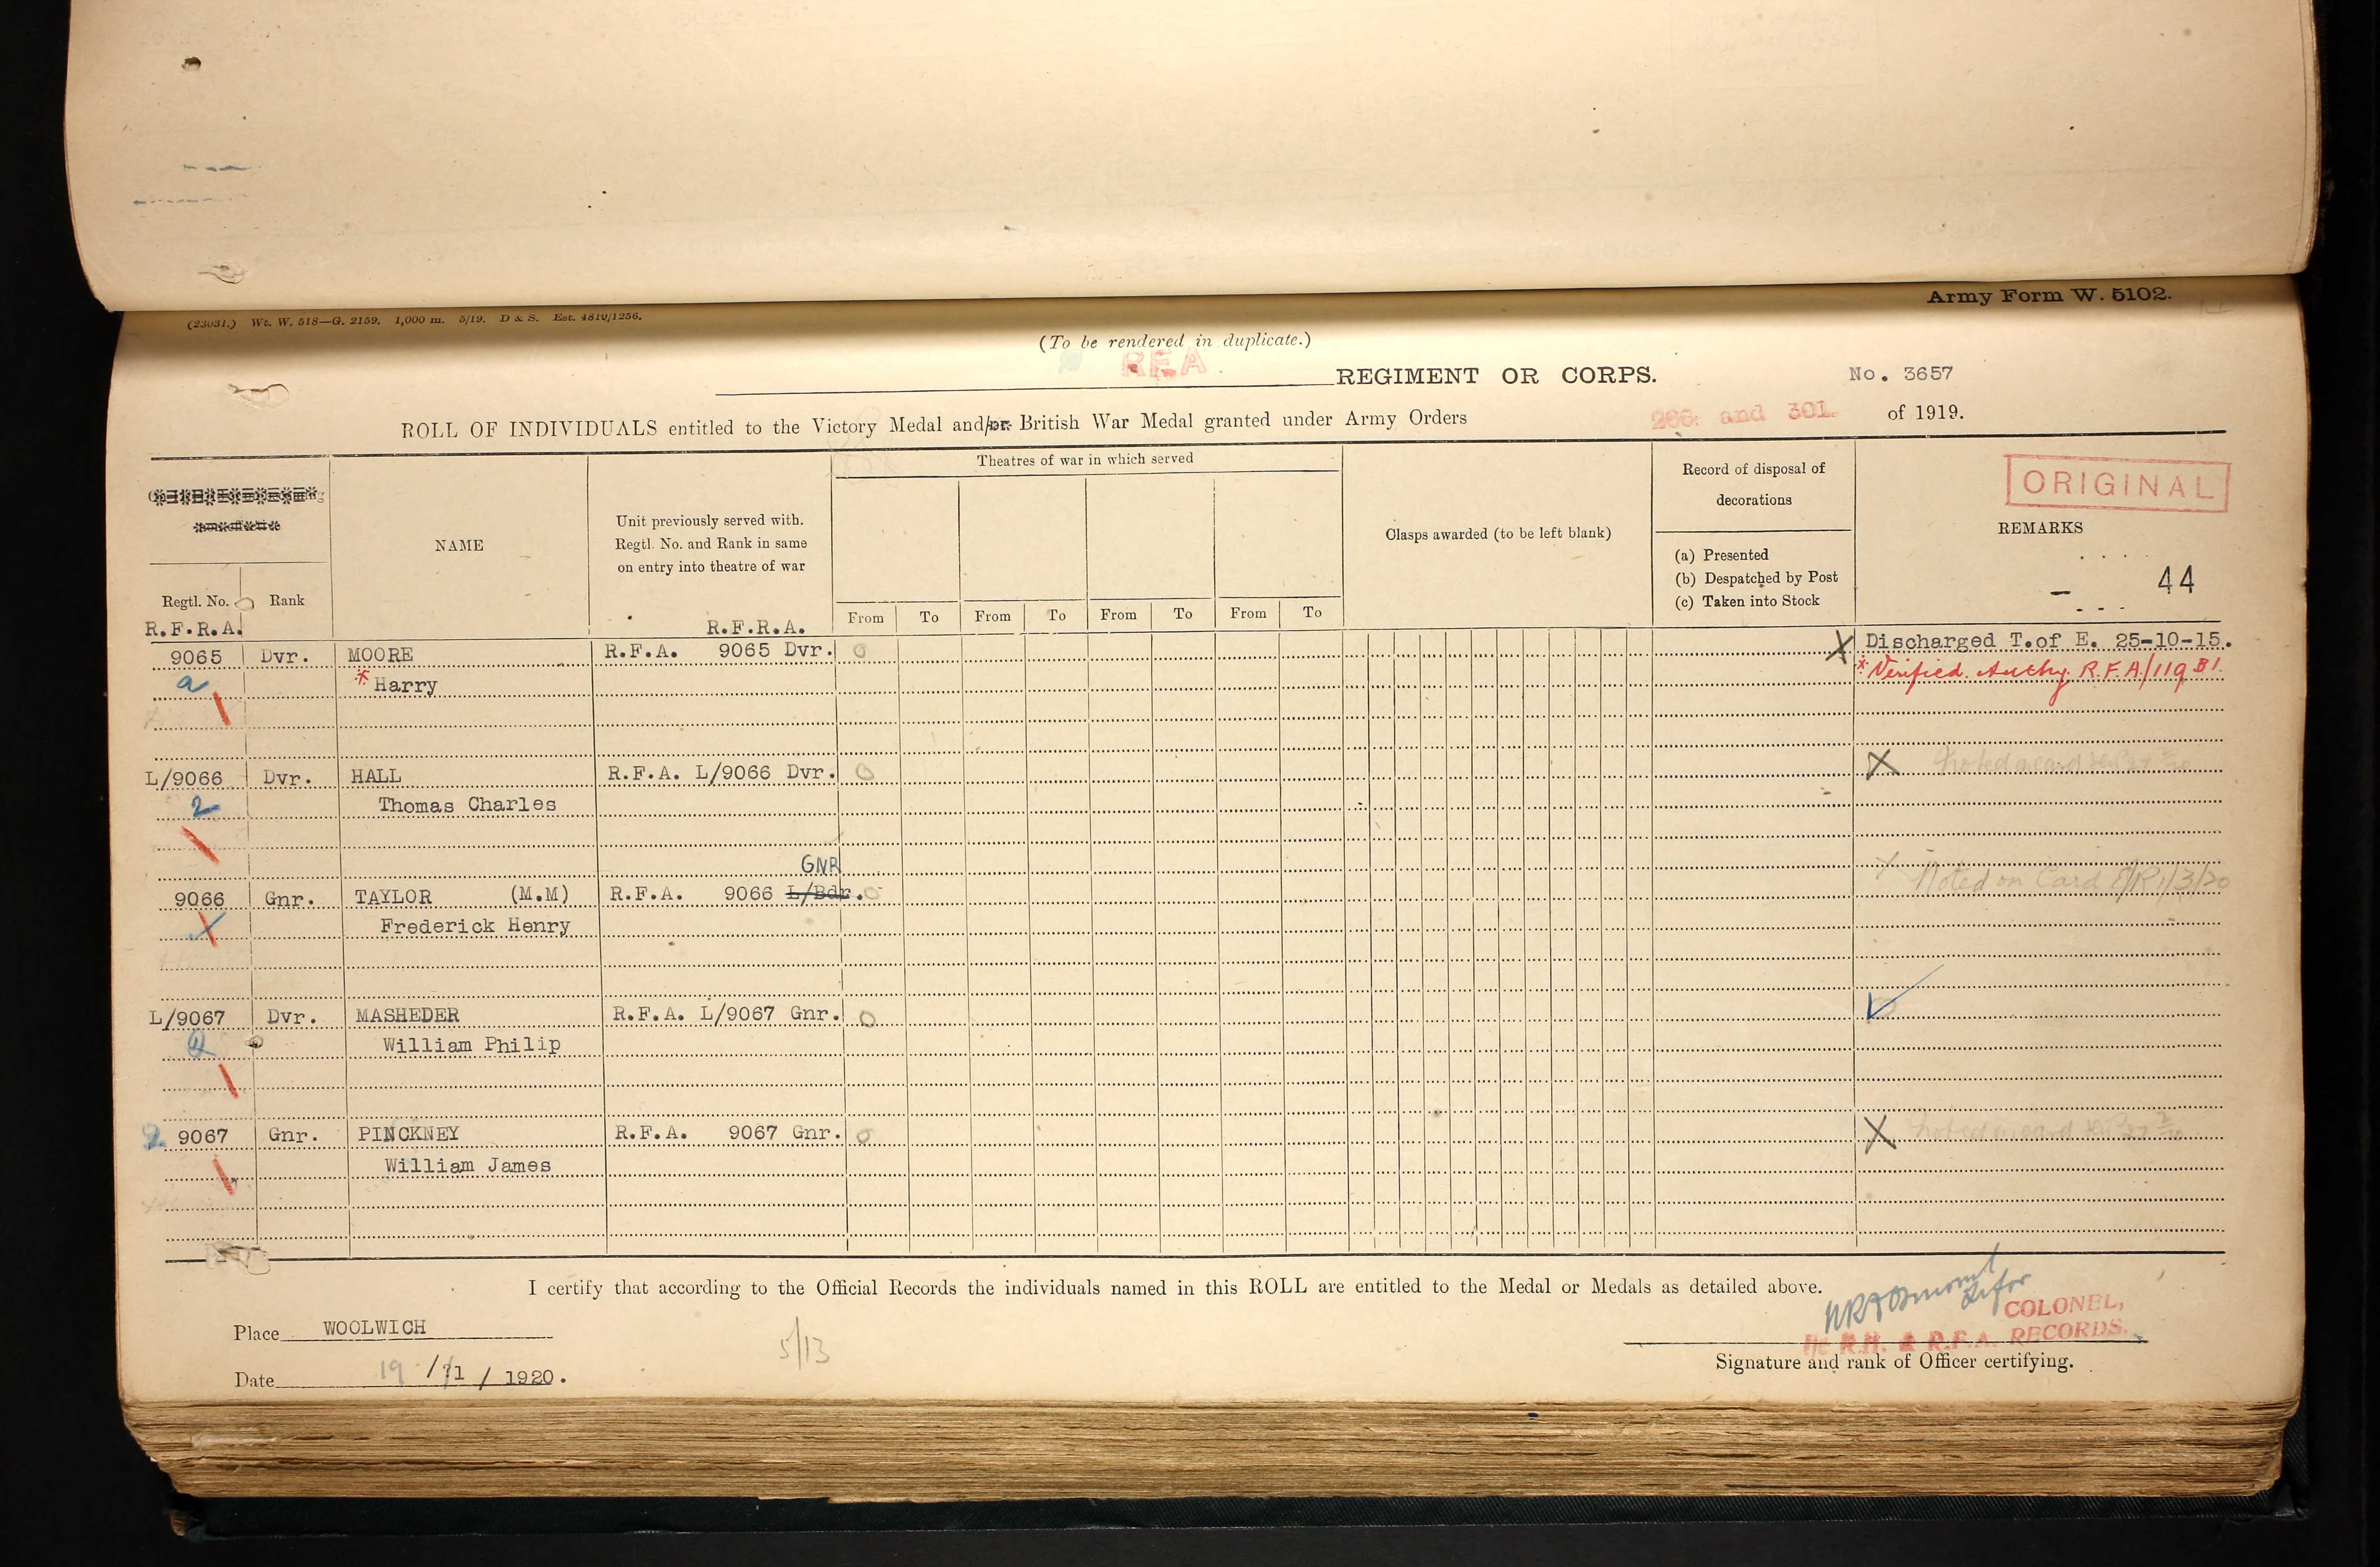 Army Form W. 5102.
(23031.) Wt. W. 518—G. 2159. 1,000 m. 5/19. D & S. Est. 4810/1256.
(To be rendered in duplicate.)
R.F.A. REGIMENT OR CORPS. No. 3657
ROLL OF INDIVIDUALS entitled to the Victory Medal and/or British War Medal granted under Army Orders 266 and 301. of 1919.
ORIGINAL
Theatres of war in which served
Record of disposal of
decorations
NAME
Unit previously served with.
Regtl. No. and Rank in same
on entry into theatre of war
Clasps awarded (to be left blank)
REMARKS
(a) Presented
(b) Despatched by Post
(c) Taken into Stock
44
Regtl. No. Rank
From To From To From To From To
R.F.R.A. R.F.R.A.
9065 Dvr. MOORE R.F.A. 9065 Dvr. X Discharged T.of E. 25-10-15.
a * Harry * Verified. Authy. R.F.A/119 B1.
L/9066 Dvr. HALL R.F.A. L/9066 Dvr. X
2 Thomas Charles
GNR
9066 Gnr. TAYLOR (M.M) R.F.A. 9066 L/Bdr. Noted on Card
Frederick Henry
L/9067 Dvr. MASHEDER R.F.A. L/9067 Gnr.
William Philip
2 9067 Gnr. PINCKNEY R.F.A. 9067 Gnr. X
William James
I certify that according to the Official Records the individuals named in this ROLL are entitled to the Medal or Medals as detailed above.
COLONEL,
Place WOOLWICH
i/c R.H. & R.F.A. RECORDS.
5/13
Signature and rank of Officer certifying.
Date 19 /1 / 1920.